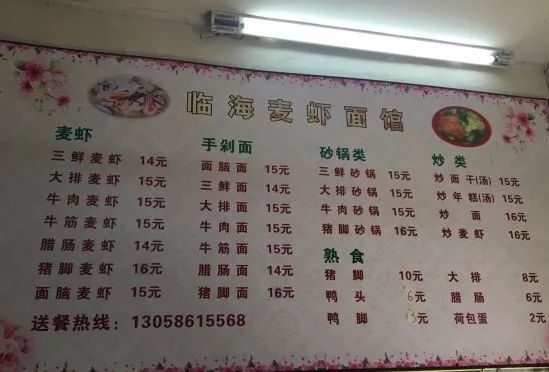 临海麦虾面馆
麦虾
三鲜麦虾 14元
大排麦虾 15元
牛肉麦虾 15元
牛筋麦虾 15元
腊肠麦虾 14元
猪脚麦虾 16元
面脑麦虾 15元
手剁面
面脑面 15元
三鲜面 14元
大排面 15元
牛肉面 15元
牛筋面 15元
腊肠面 14元
猪脚面 16元
砂锅类
三鲜砂锅 15元
大排砂锅 15元
牛肉砂锅 15元
猪脚砂锅 16元
炒类
炒面干(汤) 15元
炒年糕(汤) 15元
炒面 16元
炒麦虾 16元
熟食
猪脚 10元
鸭头 6元
鸭脚 3元
大排 8元
腊肠 6元
荷包蛋 2元
送餐热线：13058615568